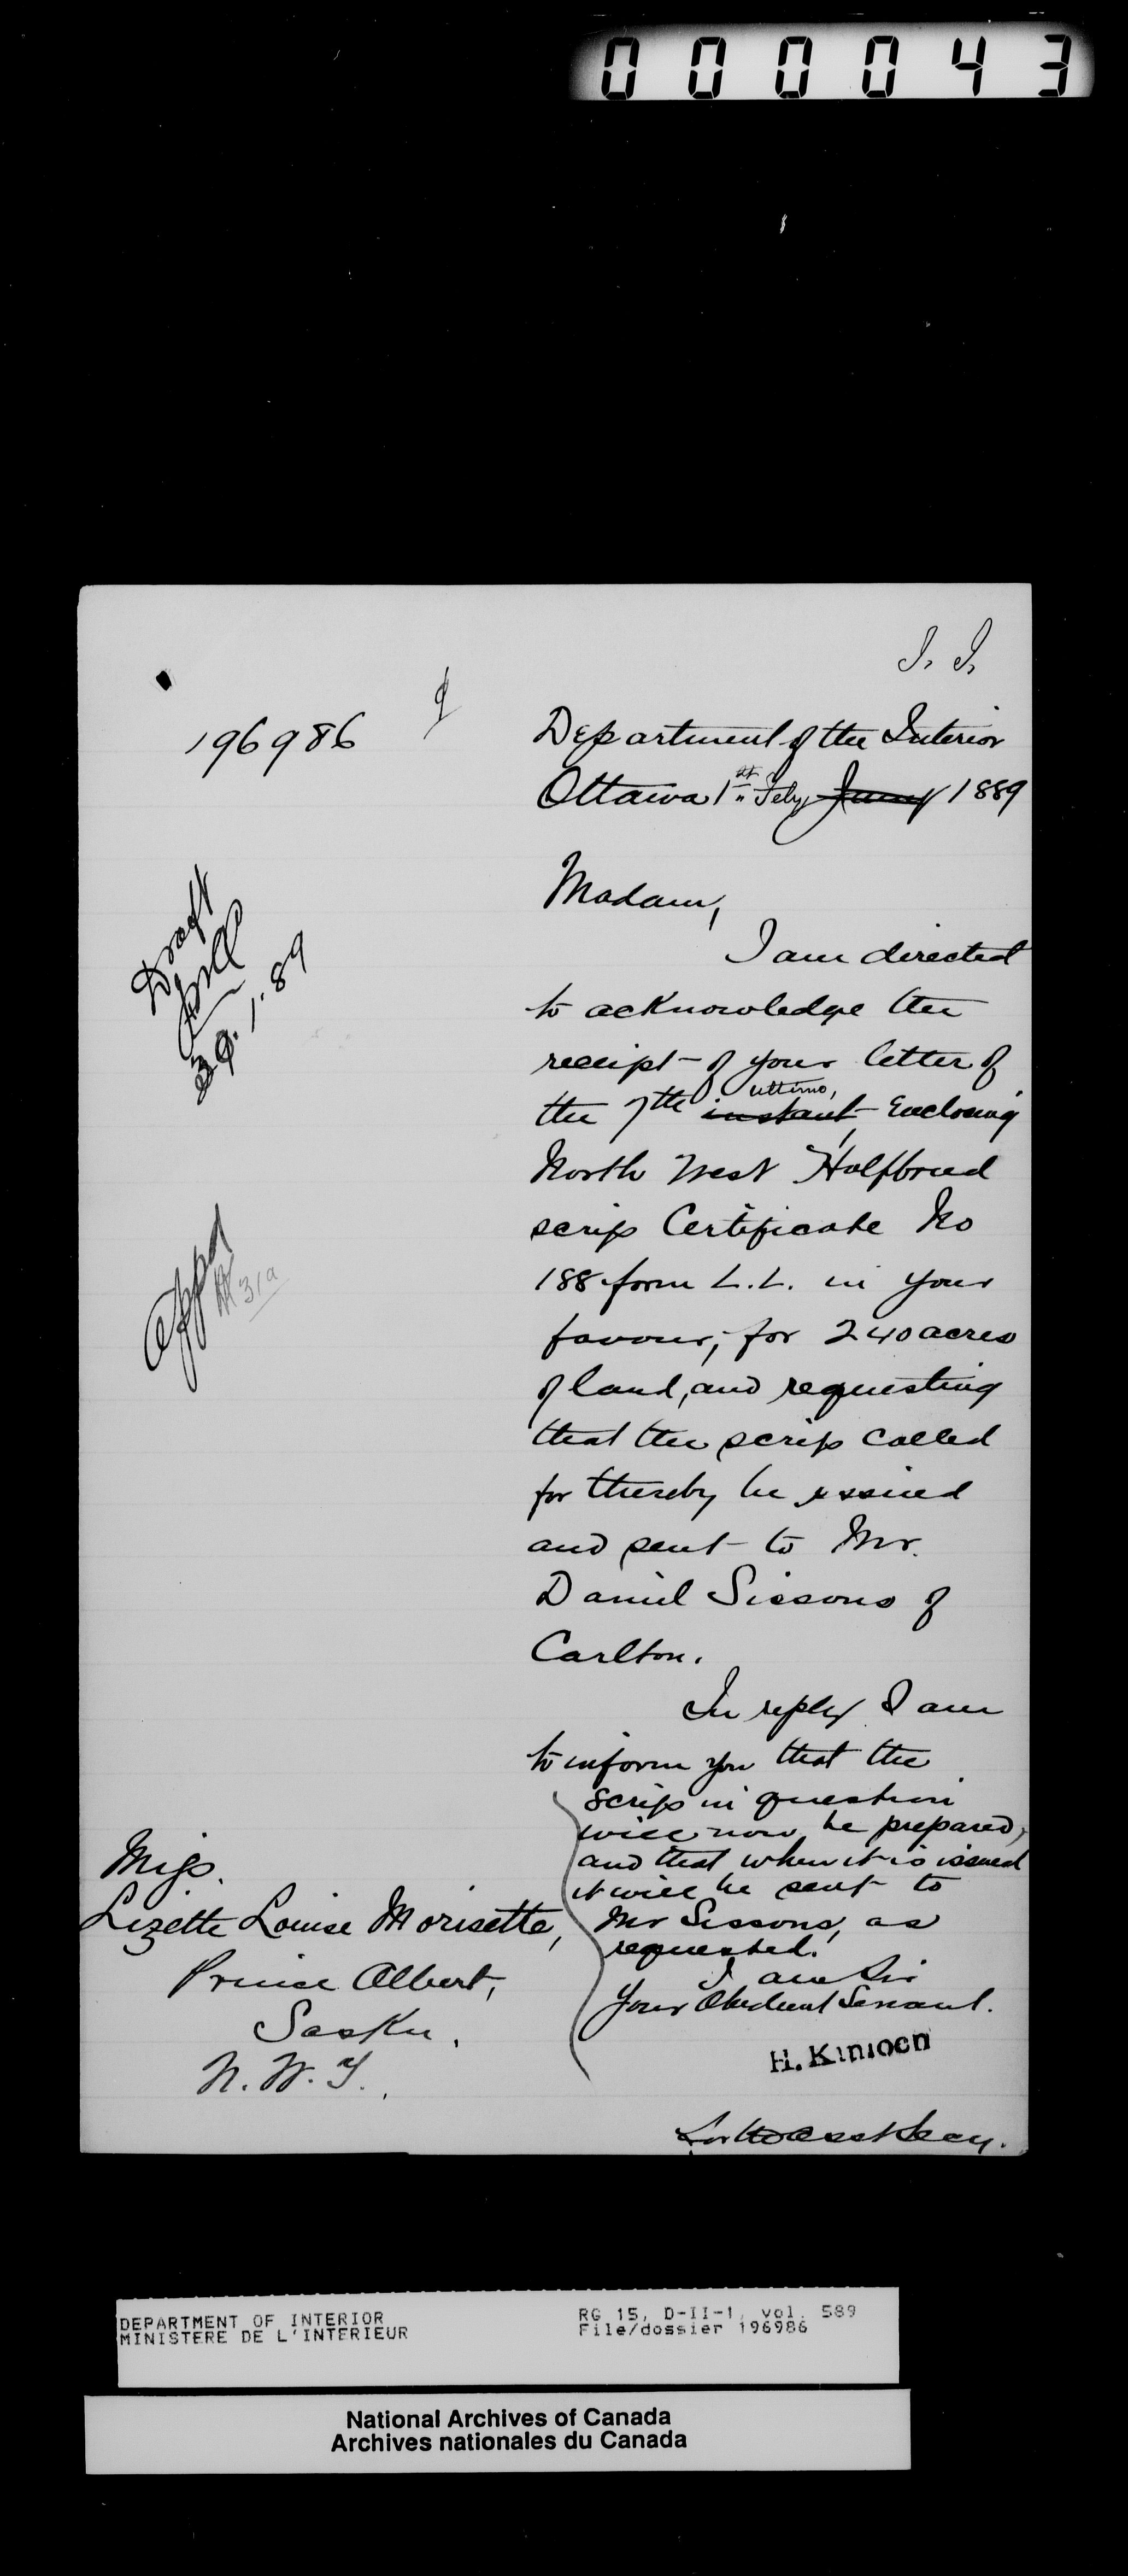 000043
196986
Department of the Interior
Ottawa 1st Feby Jany 1889
Madam,
I am directed
to acknowledge the
receipt of your letter of
the 7th instant ultimo, Enclosing
North West Halfbreed
scrip Certificate No
188 form L.L. in your
favour, for 240 acres
of land, and requesting
that the scrip called
for thereby be issued
and sent to Mr.
Daniel Sissons of
Carlton.
In reply I am
to inform you that the
scrip in question
will now be prepared,
and that when it is issued
it will be sent to
Mr Sissons, as
requested.
I am Sir
Your Obedient Servant.
H. Kinloch
for the Asst Secy.
Draft
30.1.89
appd
Miss.
Lizette Louise Morisette,
Prince Albert,
Saskn.
N.W.T.
DEPARTMENT OF INTERIOR
MINISTERE DE L'INTERIEUR
RG 15, D-II-1, vol. 589
File/dossier 196986
National Archives of Canada
Archives nationales du Canada